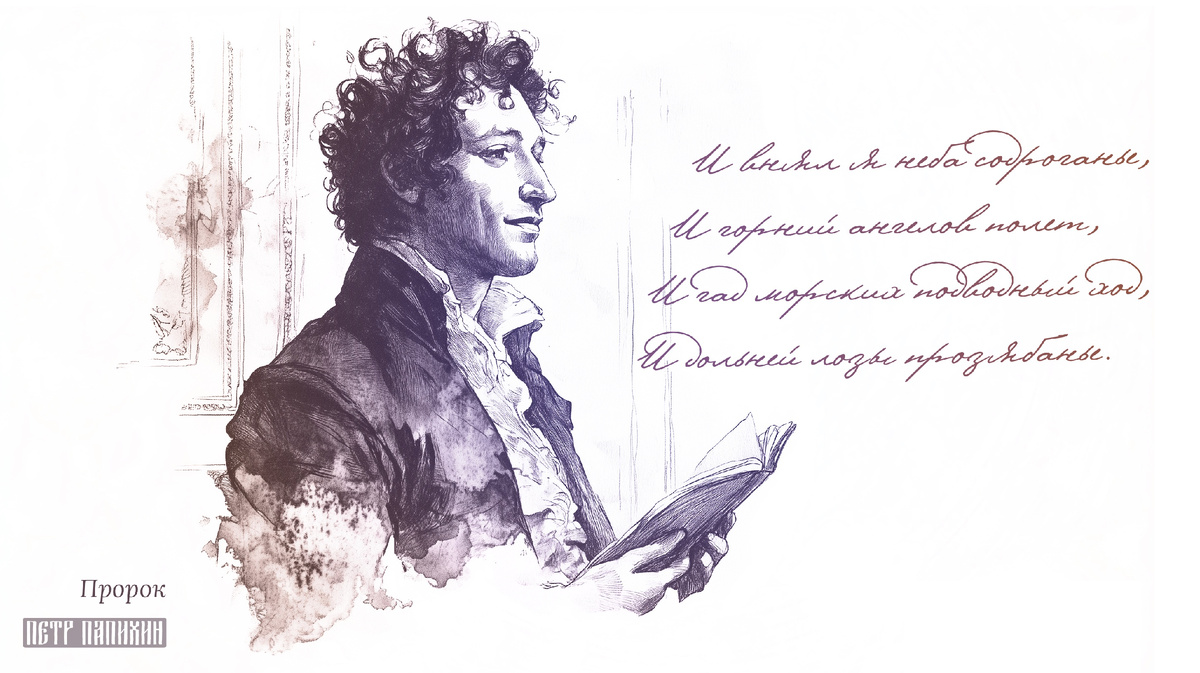 И внял я неба содроганье,
И горний ангелов полет,
И гад морских подводный ход,
И дольней лозы прозябанье.
Пророк
ПЕТР ПАПИХИН